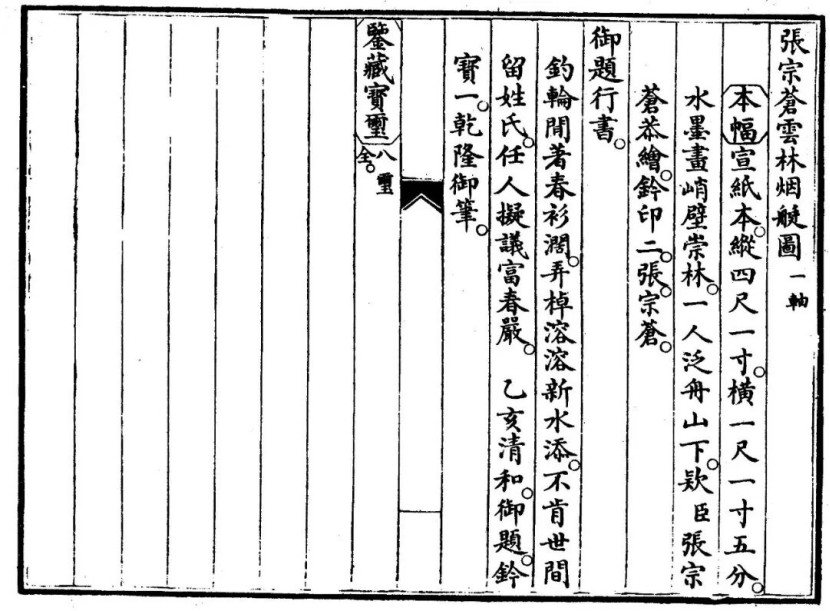 張宗蒼雲林烟艇圖一軸
本幅宣紙本。縱四尺一寸。橫一尺一寸五分。
水墨畫峭壁崇林。一人泛舟山下。欵臣張宗
蒼恭繪。鈐印二。張宗蒼。
御題行書。
釣輪閒著春衫濶。弄棹溶溶新水添。不肯世間
留姓氏。任人擬議富春嚴。 乙亥清和。御題。鈐
寶一。乾隆御筆。
鑒藏寶璽 八璽全。